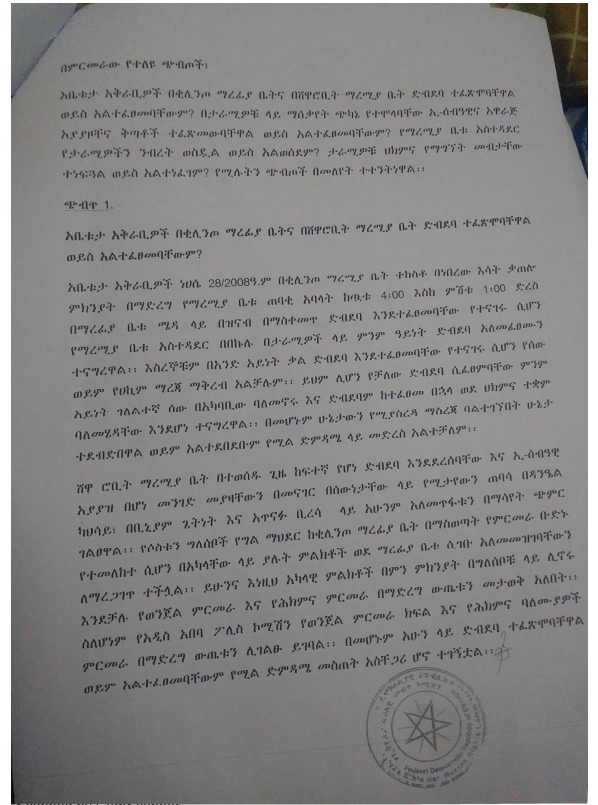 በምርመራው የተለዩ ጭብጦች፣
አቤቱታ አቅራቢዎች በቂሊንጦ ማረፊያ ቤትና በሸዋሮቢት ማረሚያ ቤት ድብደባ ተፈጽሞባቸዋል
ወይስ አልተፈፀመባቸውም? በታራሚዎቹ ላይ ማሰቃየት ጭካኔ የተሞላባቸው ኢ-ሰብዓዊና አዋራጅ
አያያዞችና ቅጣቶች ተፈጽመውባቸዋል ወይስ አልተፈፀመባቸውም? የማረሚያ ቤቱ አስተዳደር
የታራሚዎችን ንብረት ወስዷል ወይስ አልወሰደም? ታራሚዎቹ ህክምና የማግኘት መብታቸው
ተነፍጓል ወይስ አልተነፈገም? የሚሉትን ጭብጦች በመለየት ተተንትነዋል፡፡
ጭብጥ 1.
አቤቱታ አቅራቢዎች በቂሊንጦ ማረፊያ ቤትና በሸዋሮቢት ማረሚያ ቤት ድብደባ ተፈጽሞባቸዋል
ወይስ አልተፈፀመባቸውም?
አቤቱታ አቅራቢዎች ነሀሴ 28/2008ዓ.ም በቂሊንጦ ማረሚያ ቤት ተከስቶ በነበረው እሳት ቃጠሎ
ምክንያት በማድረግ የማረሚያ ቤቱ ጠባቂ አባላት ከጧቱ 4፡00 እስከ ምሽቱ 1፡00 ድረስ
በማረፊያ ቤቱ ሜዳ ላይ በዝናብ በማስቀመጥ ድብደባ እንደተፈፀመባቸው የተናገሩ ሲሆን
የማረሚያ ቤቱ አስተዳደር በበኩሉ በታራሚዎች ላይ ምንም ዓይነት ድብደባ አለመፈፀሙን
ተናግረዋል፡፡ እስረኞቹም በአንድ አይነት ቃል ድብደባ እንደተፈፀመባቸው የተናገሩ ሲሆን የሰው
ወይም የሀኪም ማረጃ ማቅረብ አልቻሉም፡፡ ይህም ሊሆን የቻለው ድብደባ ሲፈፀምባቸው ምንም
አይነት ገለልተኛ ሰው በአካባቢው ባለመኖሩ እና ድብደባም ከተፈፀመ በኋላ ወደ ህክምና ተቋም
ባለመሄዳቸው እንደሆነ ተናግረዋል፡፡ በመሆኑም ሁኔታውን የሚያስረዳ ማስረጃ ባልተገኘበት ሁኔታ
ተደብድበዋል ወይም አልተደበደቡም የሚል ድምዳሜ ላይ መድረስ አልተቻለም፡፡
ሸዋ ሮቢት ማረሚያ ቤት በተወሰዱ ጊዜ ከፍተኛ የሆነ ድብደባ እንደደረሰባቸው እና ኢ-ሰብዓዊ
አያያዝ በሆነ መንገድ መያዛቸውን በመናገር በሰውነታቸው ላይ የሚታየውን ጠባሳ በዳንዔል
ካህሳይ፣ በቢኒያም ጌትነት እና አጥናፉ ቢረሳ ላይ አሁንም አለመጥፋቱን በማሳየት ጭምር
ገልፀዋል፡፡ የሶስቱን ግለሰቦች የግል ማህደር ከቂሊንጦ ማረፊያ ቤት በማስወጣት የምርመራ ቡድኑ
የተመለከተ ሲሆን በአካላቸው ላይ ያሉት ምልክቶች ወደ ማረፊያ ቤቱ ሲገቡ አለመመዝገባቸውን
ለማረጋገጥ ተችሏል፡፡ ይሁንና እነዚህ አካላዊ ምልክቶች በምን ምክንያት በግለሰቦቹ ላይ ሊኖሩ
እንደቻሉ የወንጀል ምርመራ እና የሕክምና ምርመራ በማድረግ ውጤቱን መታወቅ አለበት፡፡
ስለሆነም የአዲስ አበባ ፖሊስ ኮሚሽን የወንጀል ምርመራ ክፍል እና የሕክምና ባለሙያዎች
ምርመራ በማድረግ ውጤቱን ሊገልፁ ይገባል፡፡ በመሆኑም አሁን ላይ ድብደባ ተፈጽሞባቸዋል
ወይም አልተፈፀመባቸውም የሚል ድምዳሜ መስጠት አስቸጋሪ ሆኖ ተገኝቷል፡፡
Federal Democratic